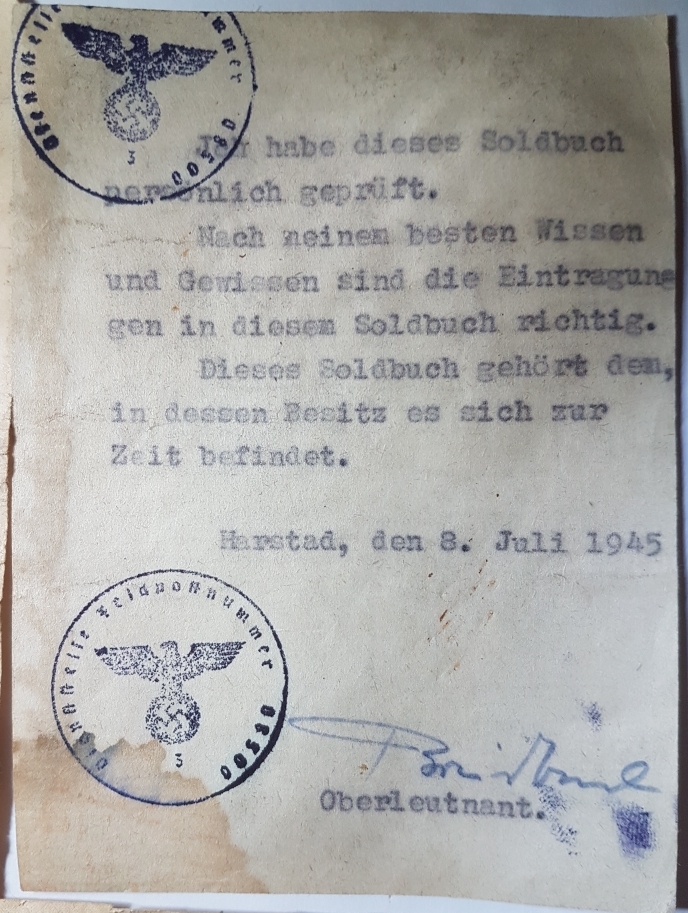 Dienststelle Feldpostnummer 08500
3
Ich habe dieses Soldbuch
persönlich geprüft.
Nach meinem besten Wissen
und Gewissen sind die Eintragung
gen in diesem Soldbuch richtig.
Dieses Soldbuch gehört dem,
in dessen Besitz es sich zur
Zeit befindet.
Harstad, den 8. Juli 1945
Dienststelle Feldpostnummer 08500
3
Oberleutnant.